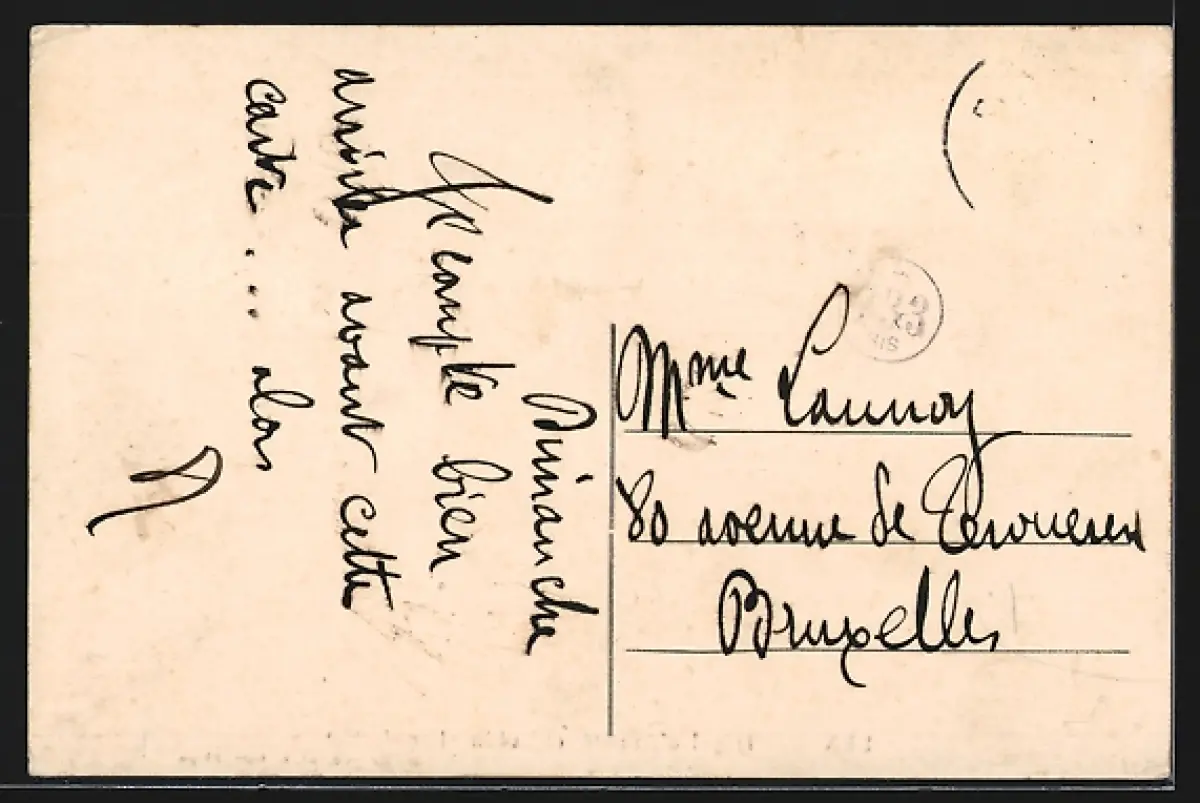 Dimanche
Je compte bien
arriver avant cette
carte .... alors
Mme Lannoy
80 avenue de Tervueren
Bruxelles